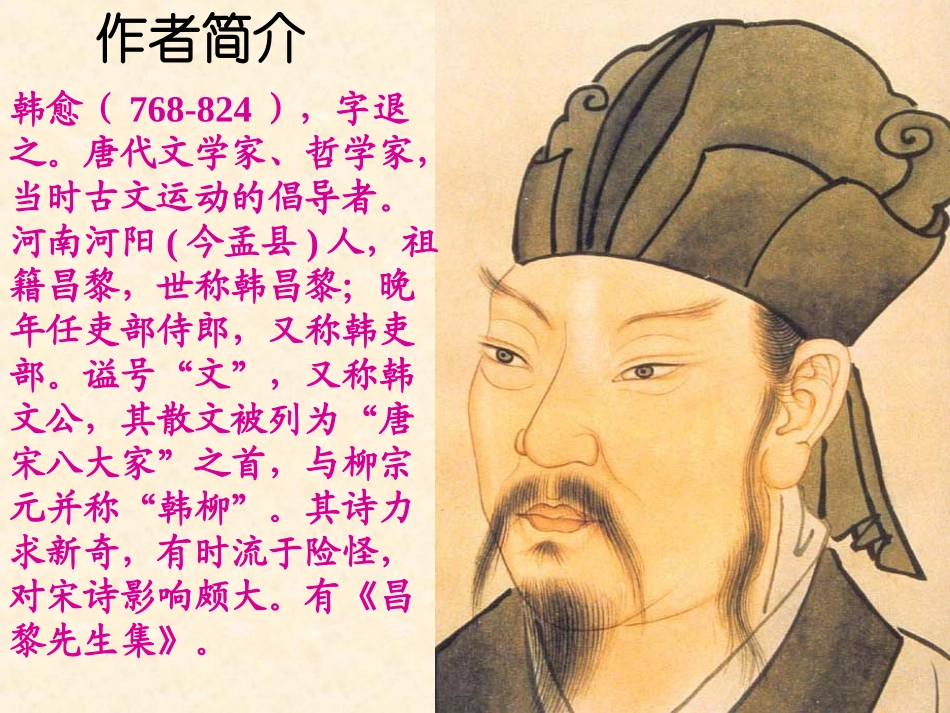 作者简介
韩愈（ 768-824 ），字退
之。唐代文学家、哲学家，
当时古文运动的倡导者。
河南河阳 ( 今孟县 ) 人，祖
籍昌黎，世称韩昌黎；晚
年任吏部侍郎，又称韩吏
部。谥号“文”，又称韩
文公，其散文被列为“唐
宋八大家”之首，与柳宗
元并称“韩柳”。其诗力
求新奇，有时流于险怪，
对宋诗影响颇大。有《昌
黎先生集》。